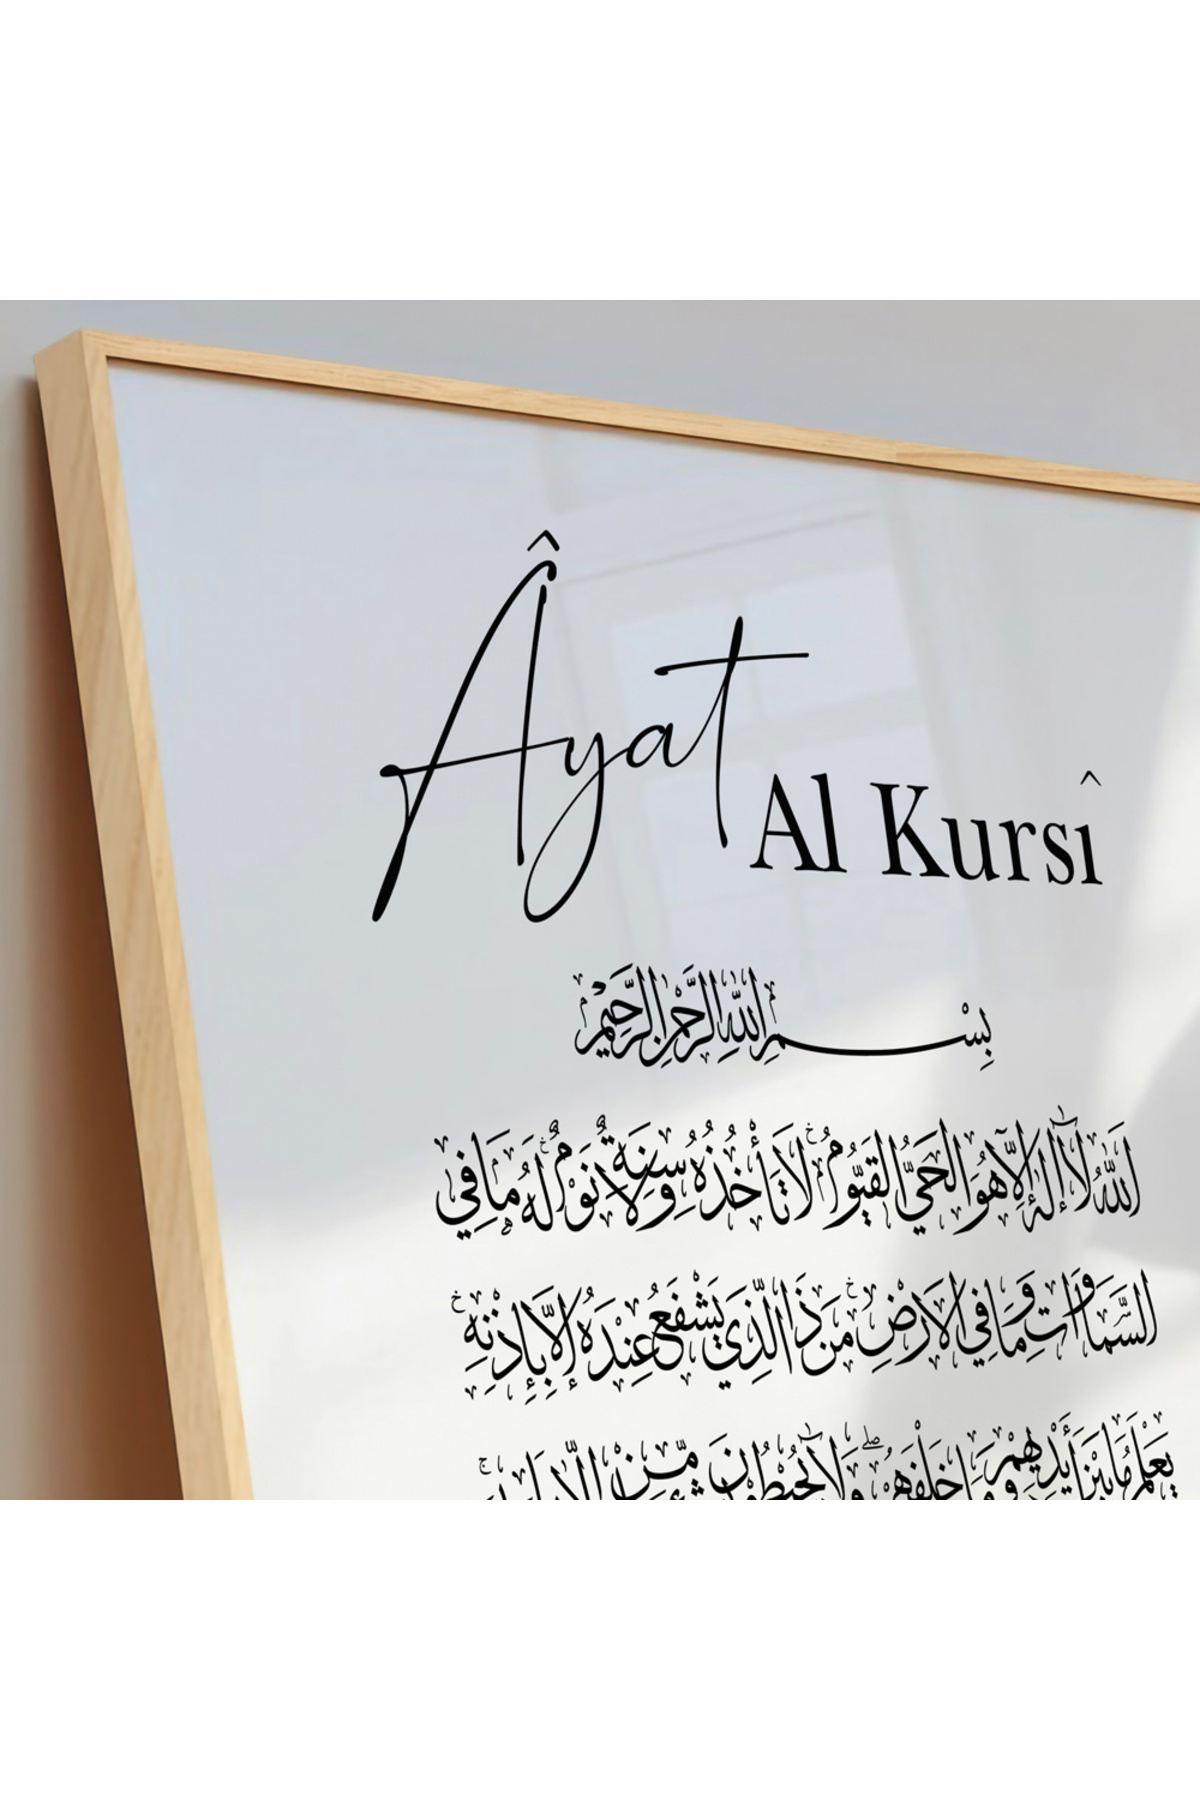 Âyat
Al Kursî
بِسْمِ اللهِ الرَّحْمٰنِ الرَّحِيْمِ
اَللهُ لَآ اِلٰهَ اِلَّا هُوَ الْحَيُّ الْقَيُّوْمُ لَا تَأْخُذُهُ سِنَةٌ وَلَا نَوْمٌ لَهُ مَا فِي
السَّمَاوَاتِ وَمَا فِي الْاَرْضِ مَنْ ذَا الَّذِي يَشْفَعُ عِنْدَهُ اِلَّا بِاِذْنِهِ
يَعْلَمُ مَا بَيْنَ اَيْدِيهِمْ وَمَا خَلْفَهُمْ وَلَا يُحِيْطُوْنَ